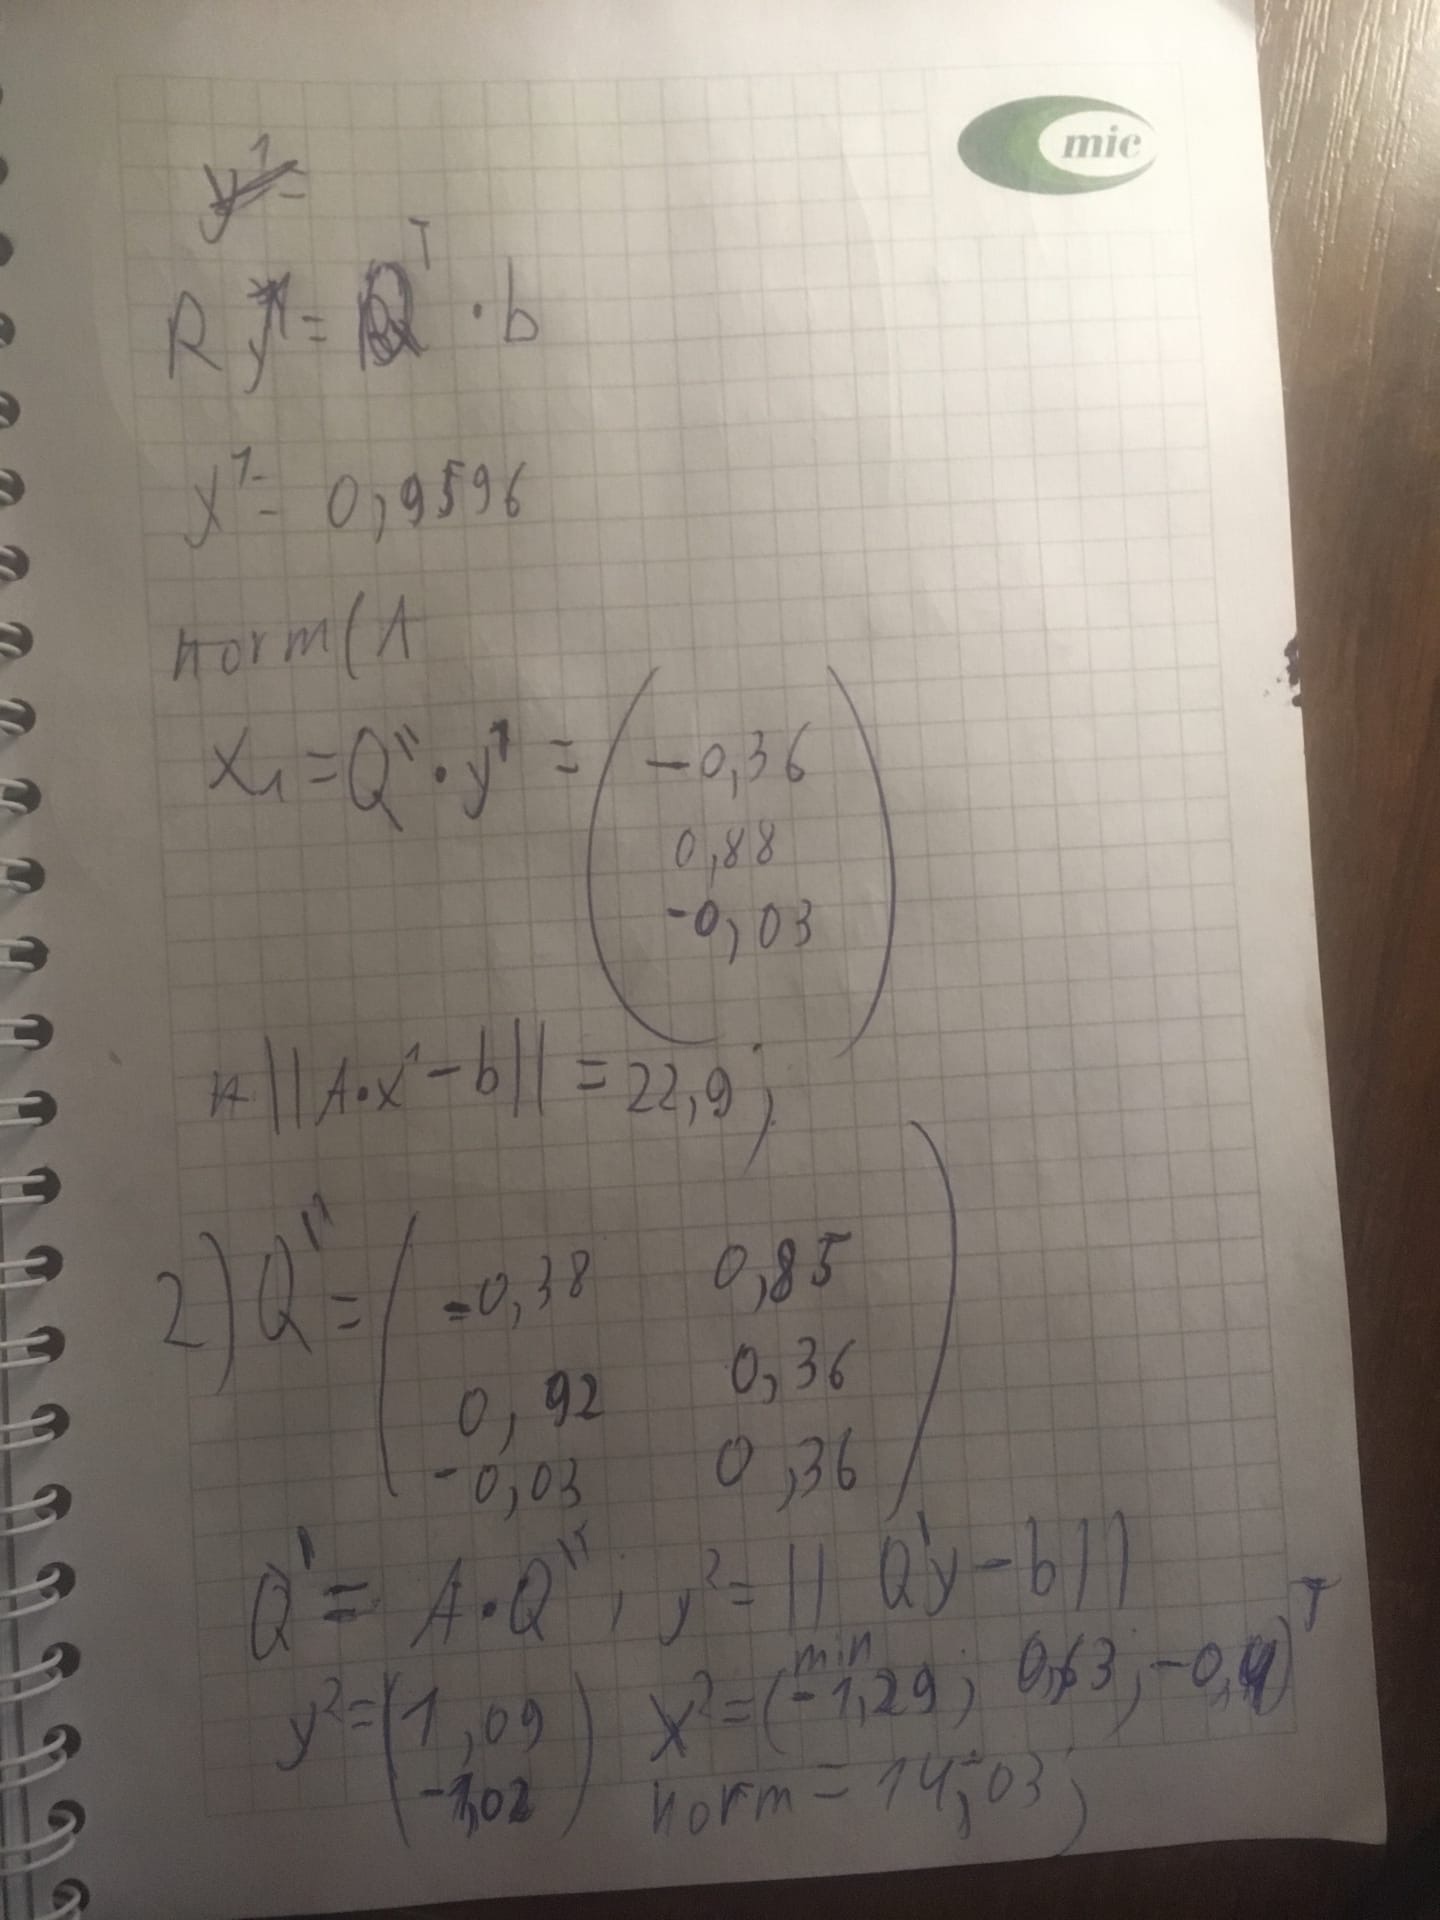 mic
y¹=
R y¹ = Qᵀ · b
y¹ = 0,9596
norm(A
x₁ = Q'' · y¹ = ( -0,36
0,88
-0,03 )
||A·x¹ - b|| = 22,9;
2) Q'' = ( -0,38 0,85
0,92 0,36
-0,03 0,36 )
Q' = A·Q'', y² = || Q'y - b ||
min
y² = ( 1,09 x² = (-1,29; 0,63; )ᵀ
-1,02 ) norm = 14,03;